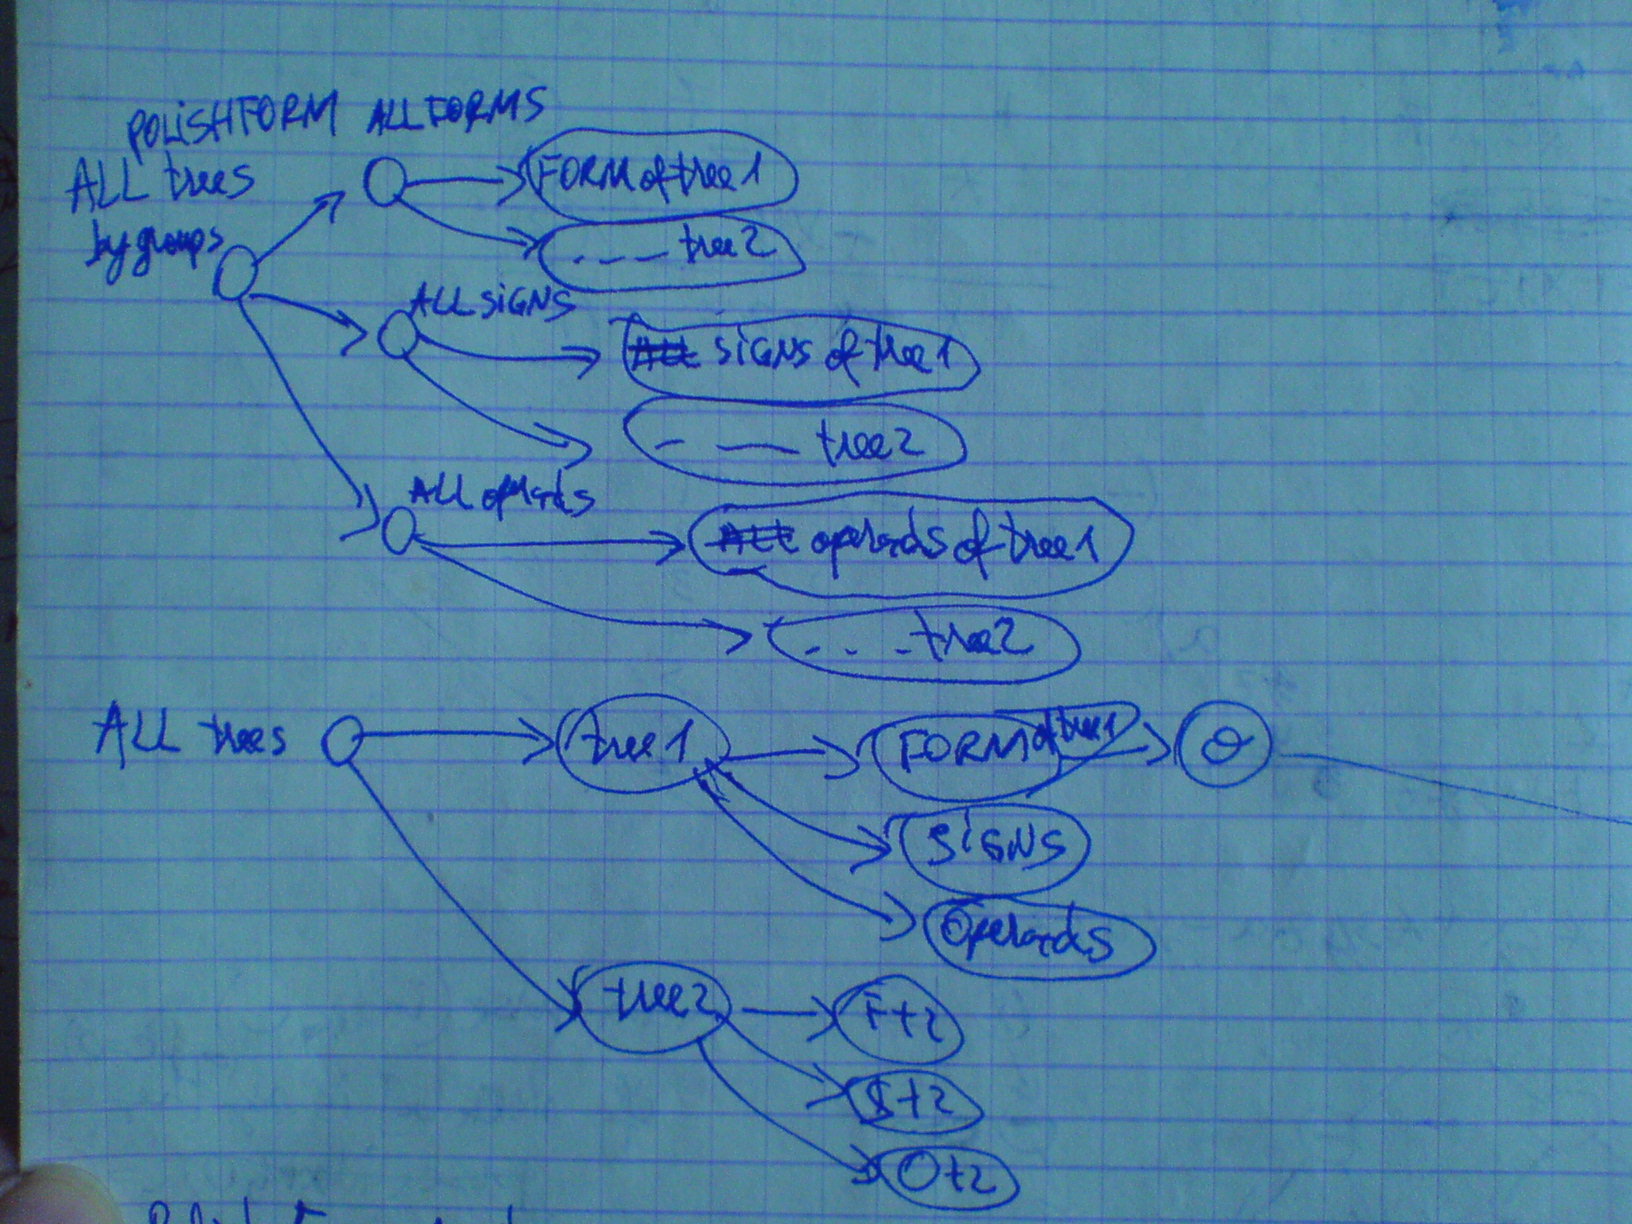 POLISHFORM ALL FORMS
ALL trees
by groups
FORM of tree1
. _ _ _ tree2
ALL SIGNS
SIGNS of tree1
_ __ tree2
ALL
operads of tree1
. . . tree2
ALL trees
tree1
FORM of tree1
SIGNS
Operads
tree2
F t2
S t2
O t2